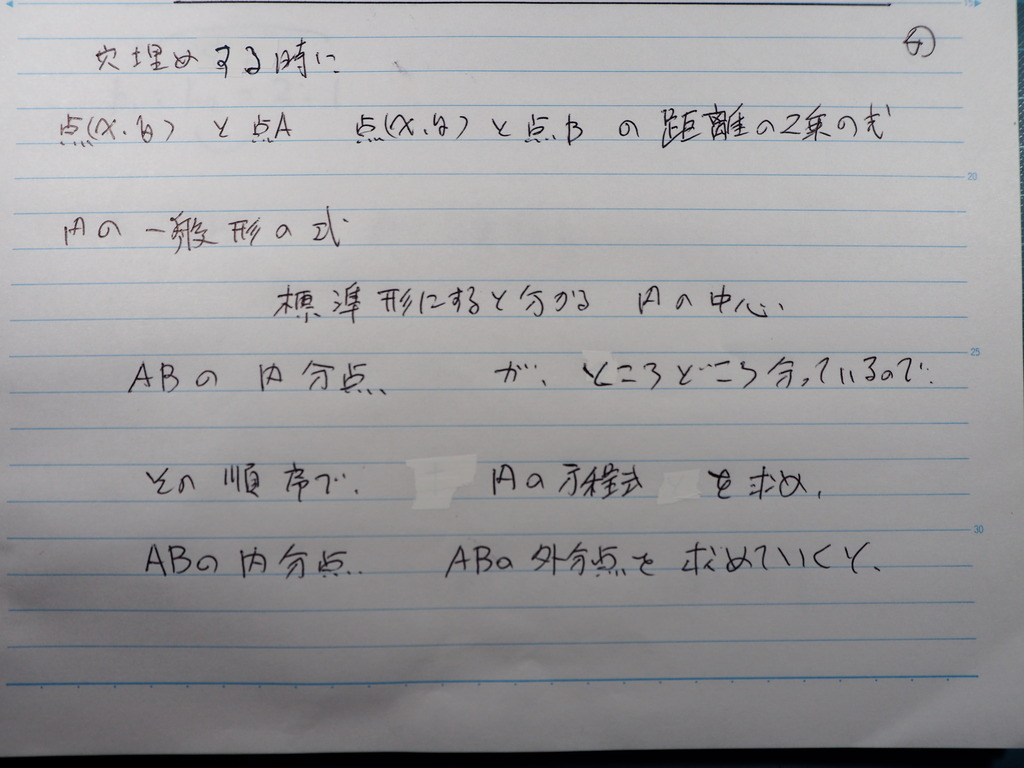 ④
穴埋めする時に
点(x、y) と点A 点(x、y)と点B の距離の2乗の式
円の一般形の式
標準形にすると分かる 円の中心、
ABの内分点、 が、ところどころ分っているので、
その順序で、 円の方程式 を求め、
ABの内分点、 ABの外分点を求めていくと、
15
20
25
30